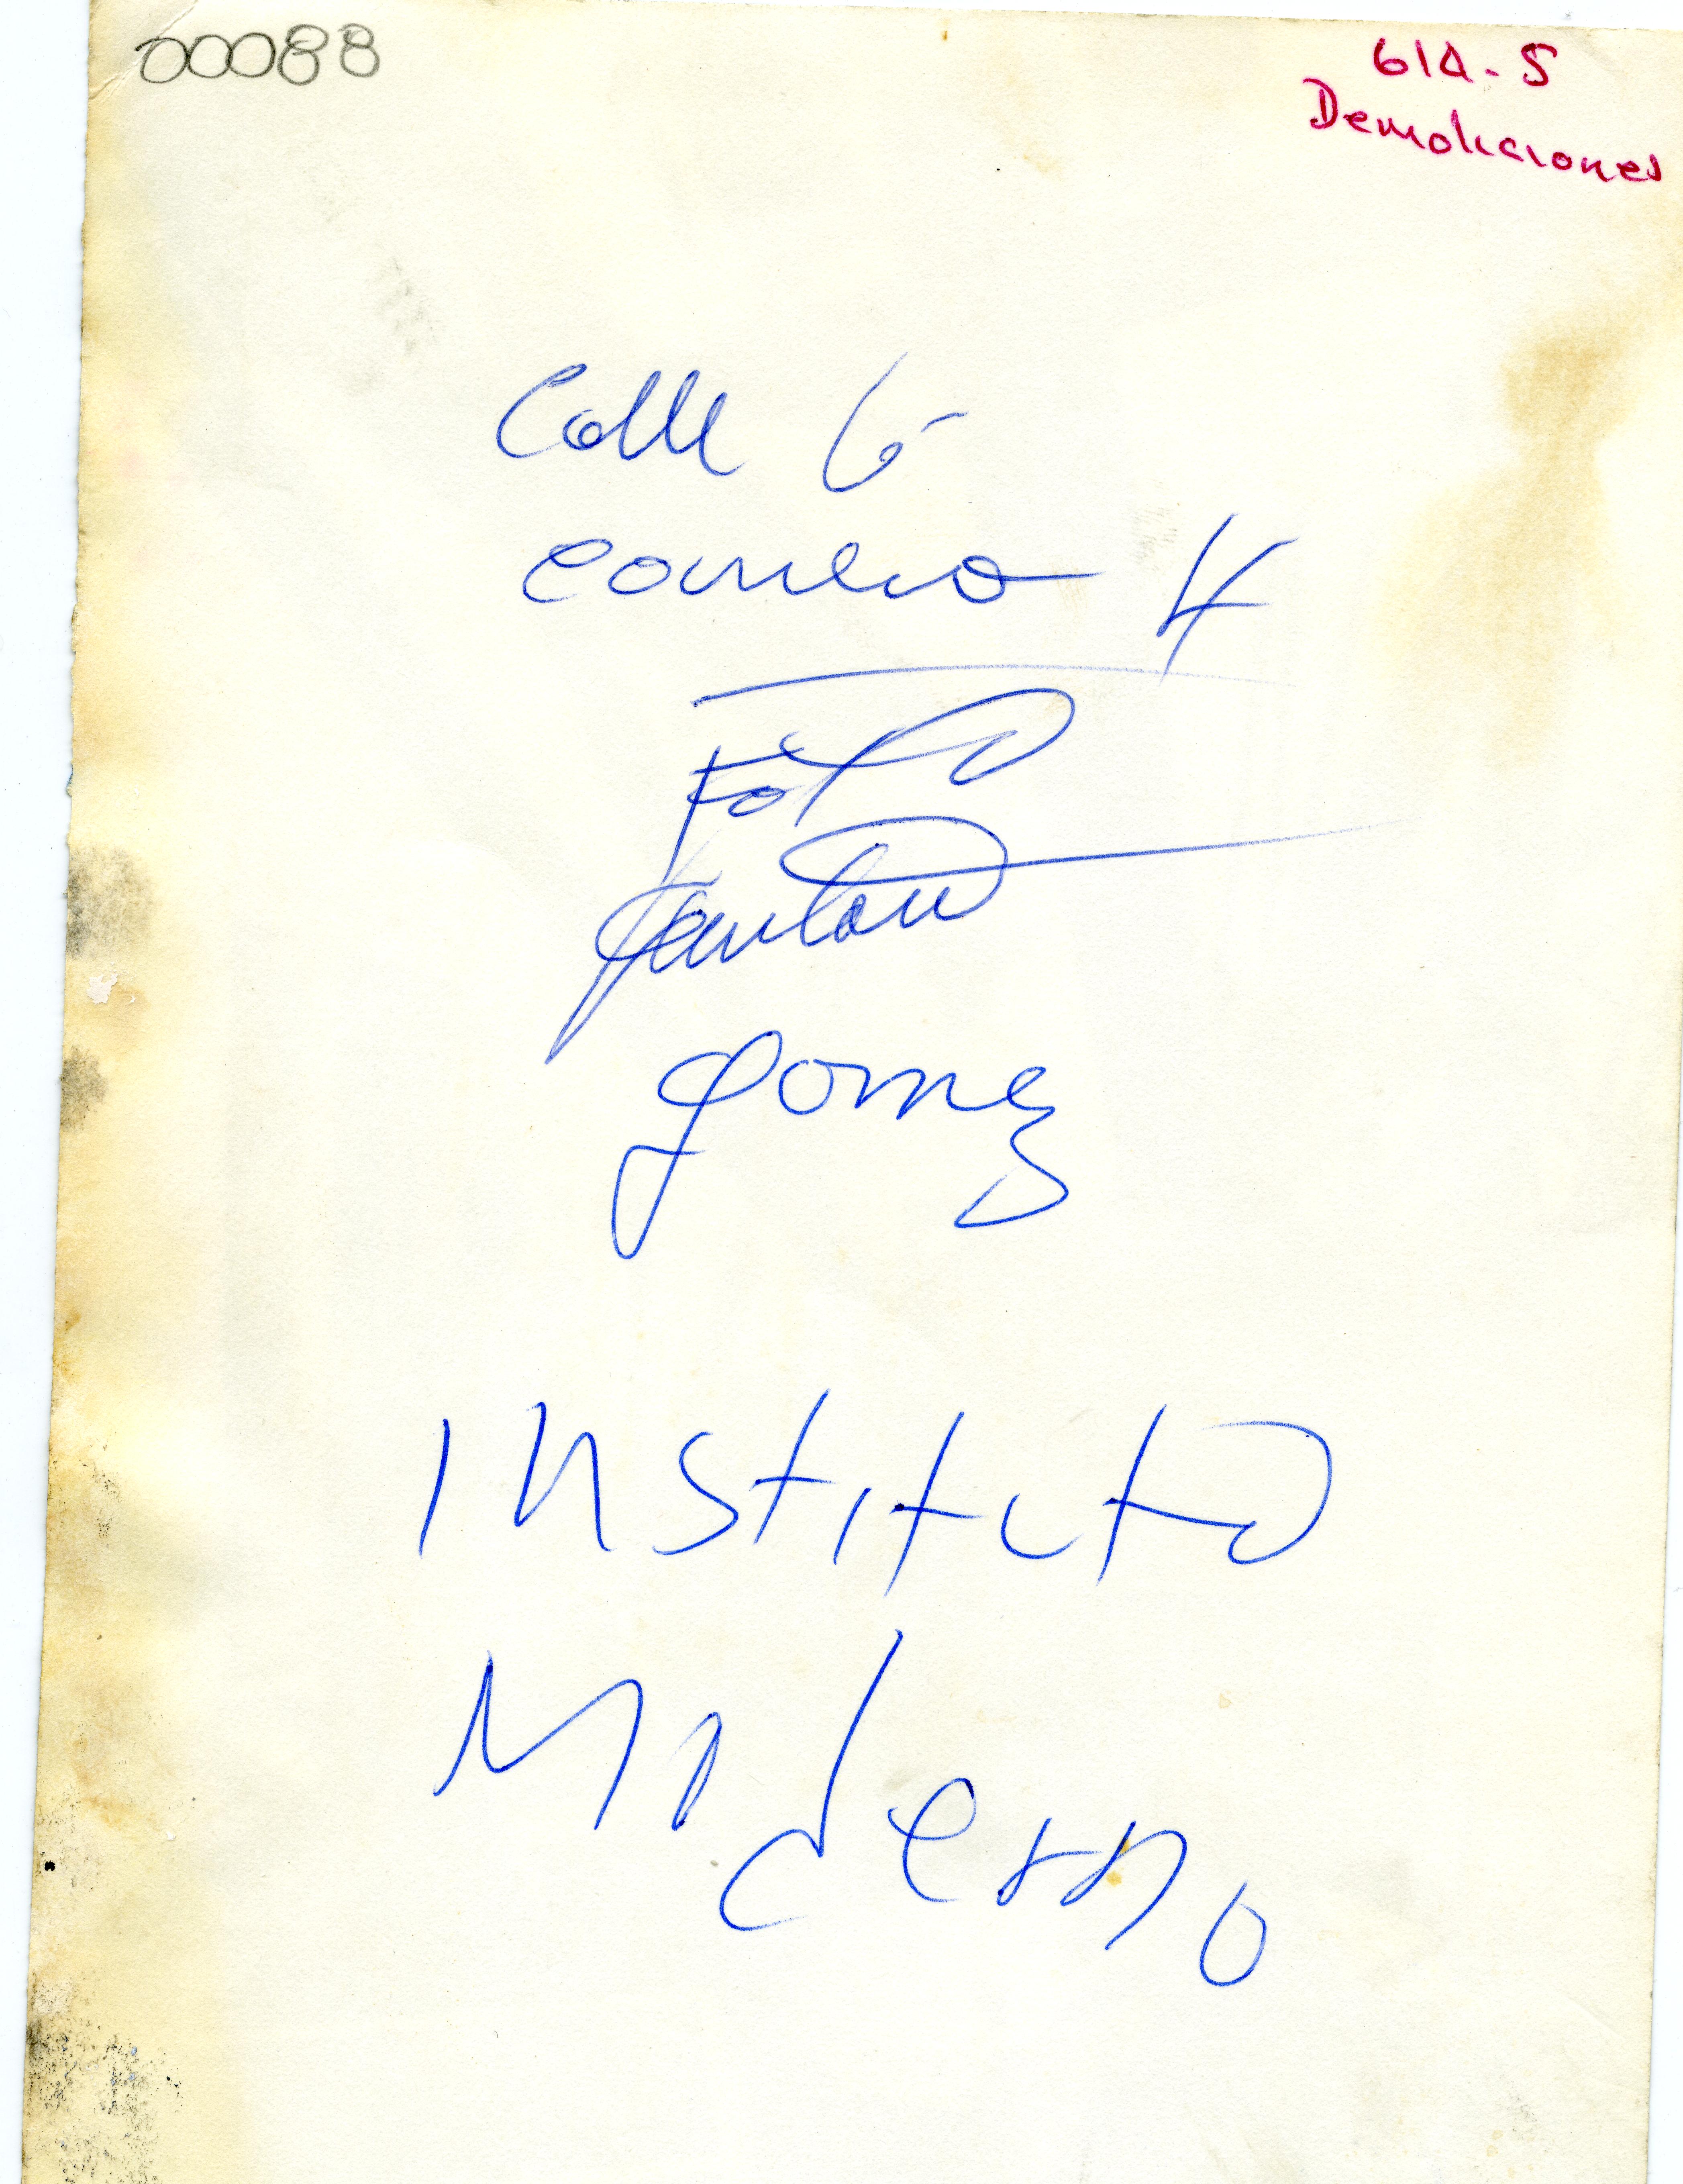 00088
61A-5
Demoliciones
Calle 6
carrera 4
Foto
Gomez
Instituto
Moderno